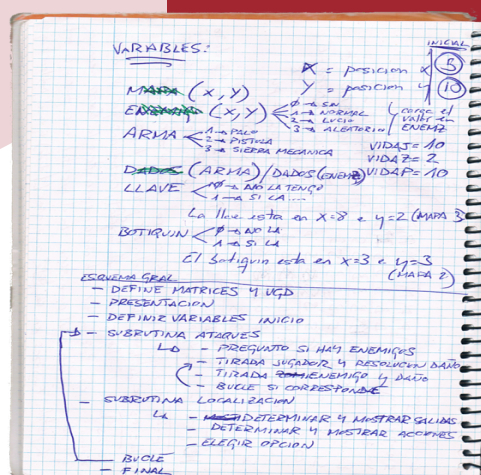 VARIABLES:
INICIAL
X = posicion x 5
Y = posicion y 10
MAPA (X, Y)
(X, Y) 0→ SIN
1→ NORMAL
2→ LUCIO
3→ ALEATORIO
corre el
valor en
ENEMZ
ARMA 1→ PALO
2→ PISTOLA
3→ SIERRA MECANICA
VIDAJ = 10
VIDAZ = 2
VIDAP = 10
DADOS (ARMA) / DADOS (ENEMZ)
LLAVE 0→ NO LA TENGO
1→ SI LA ....
La llave esta en X=8 e y=2 (MAPA 3)
BOTIQUIN 0→ NO LA
1→ SI LA
El botiquin esta en X=3 e y=3
(MAPA 2)
ESQUEMA GRAL
- DEFINE MATRICES Y UGD
- PRESENTACION
- DEFINIR VARIABLES INICIO
- SUBRUTINA ATAQUES
- PREGUNTO SI HAY ENEMIGOS
- TIRADA JUGADOR Y RESOLUCION DAÑO
- TIRADA ENEMIGO Y DAÑO
- BUCLE SI CORRESPONDE
- SUBRUTINA LOCALIZACION
- DETERMINAR Y MOSTRAR SALIDAS
- DETERMINAR Y MOSTRAR ACCIONES
- ELEGIR OPCION
- BUCLE
- FINAL